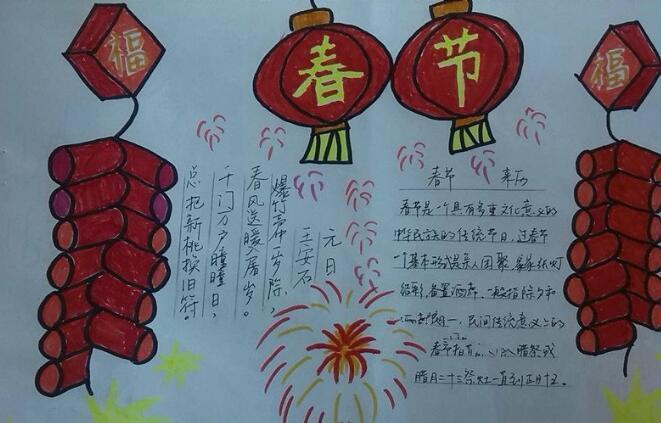 福
春
节
福
元日
王安石
爆竹声中一岁除,
春风送暖入屠岁。
千门万户曈曈日,
总把新桃换旧符。
春节 来历
春节是一个具有多重文化意义的
中华民族的传统节日,过春节
一个基本形式是亲人团聚
结彩,备置酒席,一般指除夕和
正月初一,民间传统意义上的
春节指 腊祭或
腊月二十三祭灶一直到正月十五。